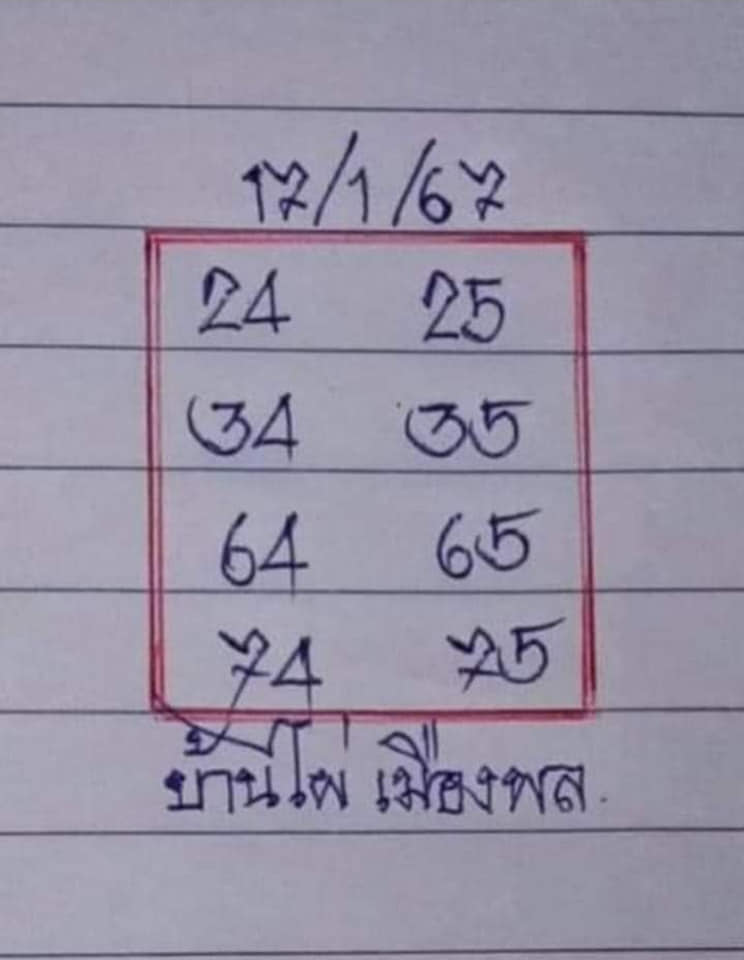 17/1/67
24 25
34 35
64 65
74 75
บ้านไผ่ เมืองพล.